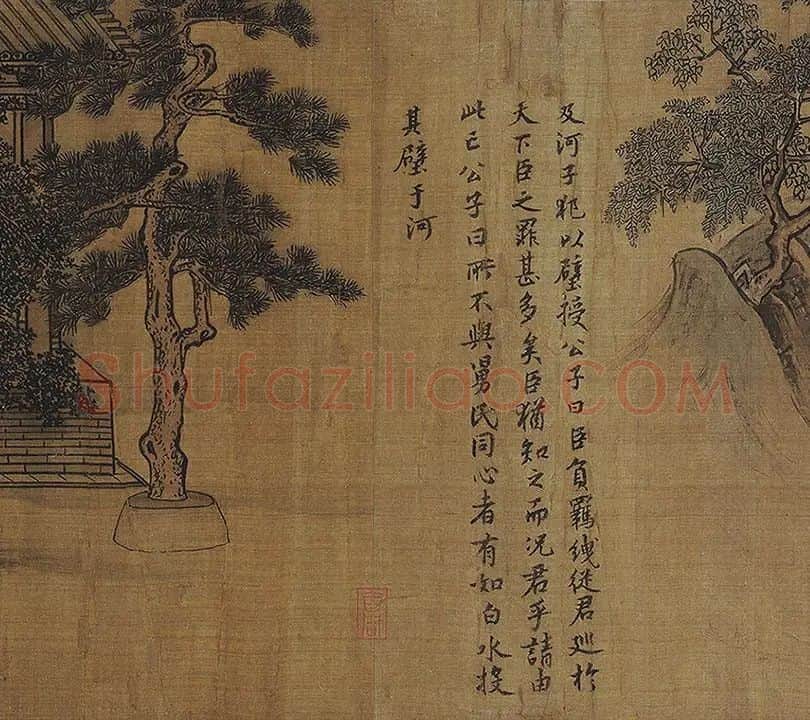 及河子犯以璧授公子曰臣負羈絏從君巡於
天下臣之罪甚多矣臣猶知之而况君乎請由
此亡公子曰所不與舅氏同心者有如白水投
其璧于河
Shufaziliao.COM